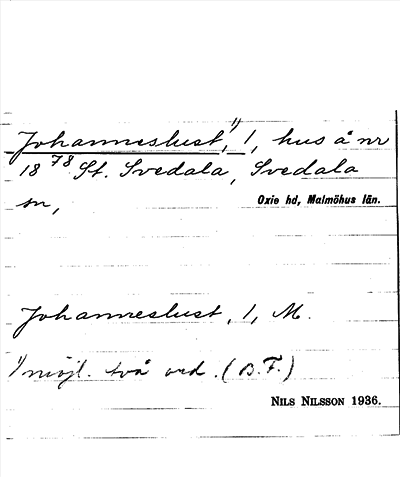 Johanneslust,¹⁾ 1, hus å nr
18⁷⁸ St. Svedala, Svedala
sn,
Oxie hd, Malmöhus län.
Johanneslust, 1, M.
¹⁾ möjl. två ord. (B.F.)
NILS NILSSON 1936.